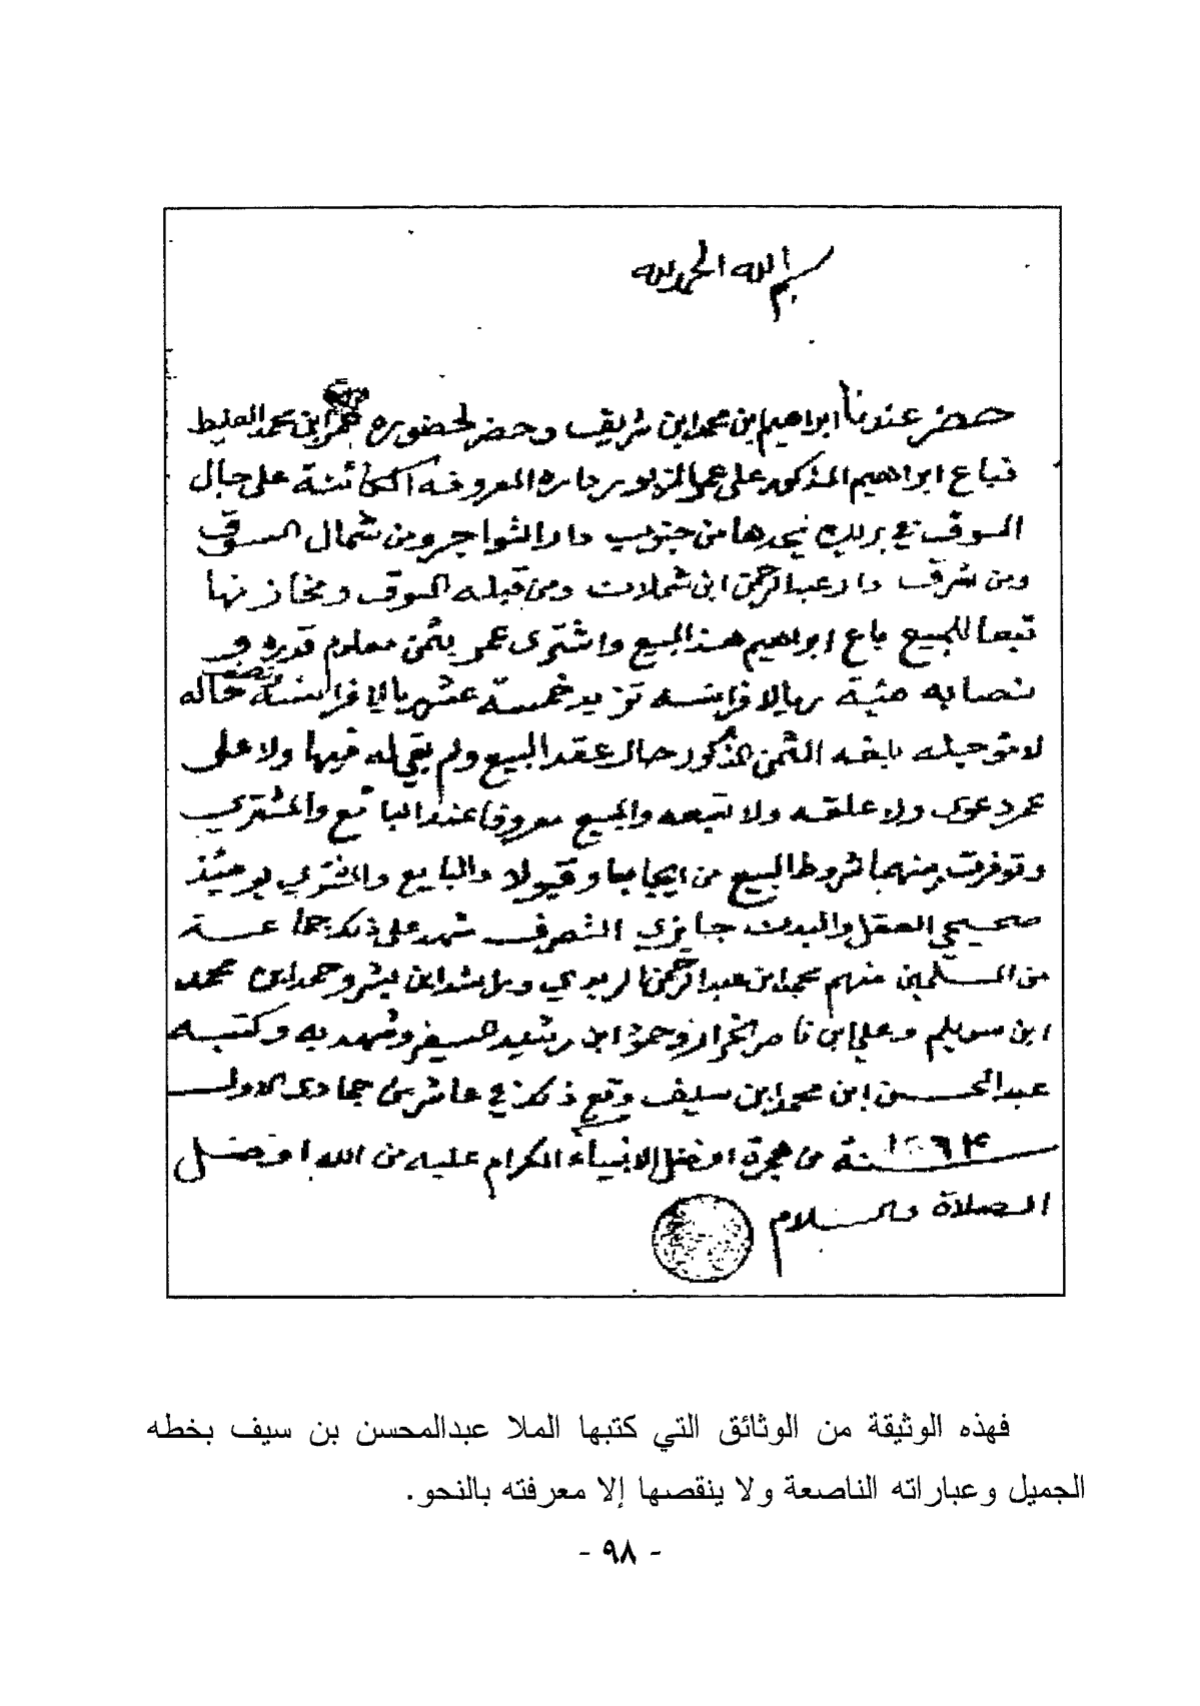 بسم الله الحمد لله
حضر عندنا ابراهيم ابن محمد ابن شريف وحضر لحضوره عمر ابن محمد العليط
فباع ابراهيم المذكور على عمر المزبور داره المعروفه الكائنة على جال
السوق في بريده يحدها من جنوب دار الشواجر ومن شمال السوق
ومن شرق دار عبدالرحمن ابن شملات ومن قبله السوق ومخازنها
تبعا للمبيع باع ابراهيم هذا المبيع واشترى عمر بثمن معلوم قدره و
نصابه مئية ريالا فرانسه تزيد خمسة عشر ريالا فرانسة ونصف حاله
لا مؤجله بلغه الثمن المذكور حال عقد البيع ولم يبقى له فيها ولا على
عمر دعوى ولا علقه ولا تبعه والمبيع معروفا عند البائع والمشتري
وتوفرت منهما شروط البيع من ايجابا وقبولا والبايع والمشتري يومئذ
صحيحي العقل والبدن جايزي التصرف شهد على ذلك جماعة
من المسلمين منهم محمد ابن عبدالرحمن الربدي وراشد ابن بشر وحمد ابن محمد
ابن سويلم وعلي ابن ناصر الخراز وحمود ابن رشيد السيف وشهد به وكتبه
عبدالمحسن ابن محمد ابن سيف وقع ذلك في عاشر من جمادى الاول
سنة ١٢٦٣ من هجرة افضل الانبياء الكرام عليه من الله افضل
الصلاة والسلام
فهذه الوثيقة من الوثائق التي كتبها الملا عبدالمحسن بن سيف بخطه
الجميل وعباراته الناصعة ولا ينقصها إلا معرفته بالنحو.
- ٩٨ -